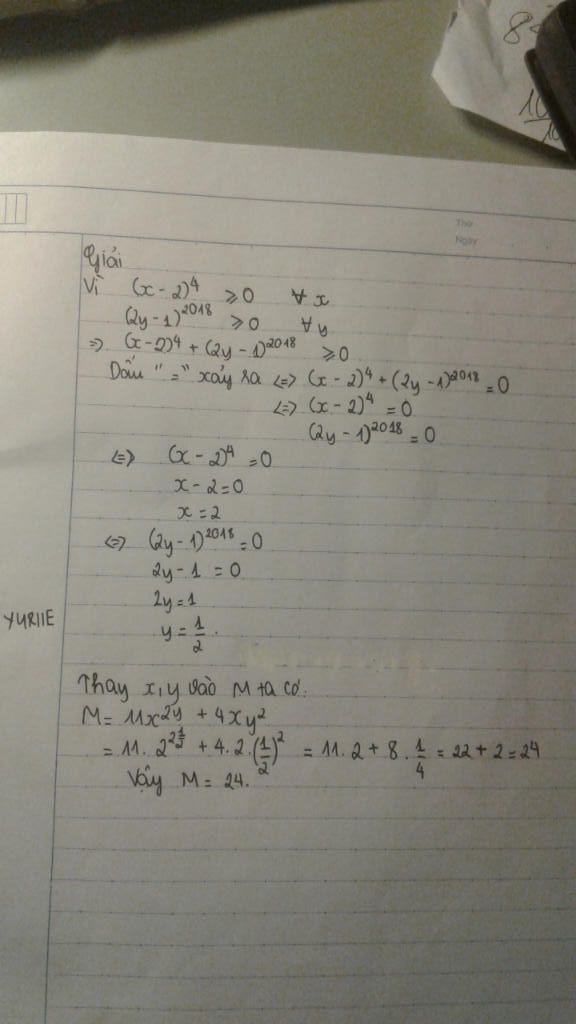 Thứ
Ngày
Giải
Vì (x-2)⁴ ≥0 ∀x
(2y-1)²⁰¹⁸ ≥0 ∀y
=> (x-2)⁴ + (2y-1)²⁰¹⁸ ≥0
Dấu "=" xảy ra <=> (x-2)⁴ + (2y-1)²⁰¹⁸ =0
<=> (x-2)⁴ =0
(2y-1)²⁰¹⁸ =0
<=> (x-2)⁴ =0
x-2=0
x=2
<=> (2y-1)²⁰¹⁸ =0
2y-1 =0
2y=1
y = 1/2.
YURIIE
Thay x,y vào M ta có:
M= 11x^2y + 4xy²
= 11. 2^(2 1/2) + 4.2.(1/2)² = 11.2 + 8.1/4 = 22 + 2 = 24
Vậy M = 24.